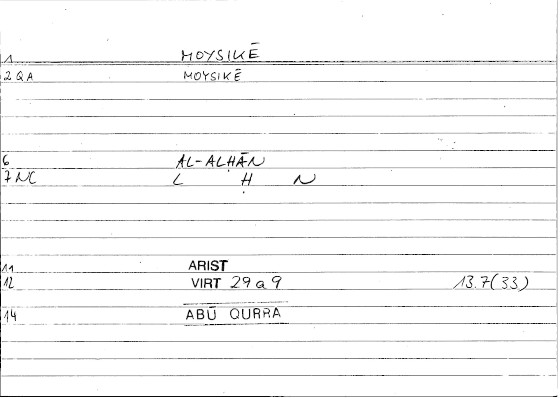 1 MOYSIKĒ
2 QA MOYSIKĒ
6 AL-ALḤĀN
7 NC L Ḥ N
11 ARIST
12 VIRT 29a9 13.7(33)
14 ABŪ QURRA